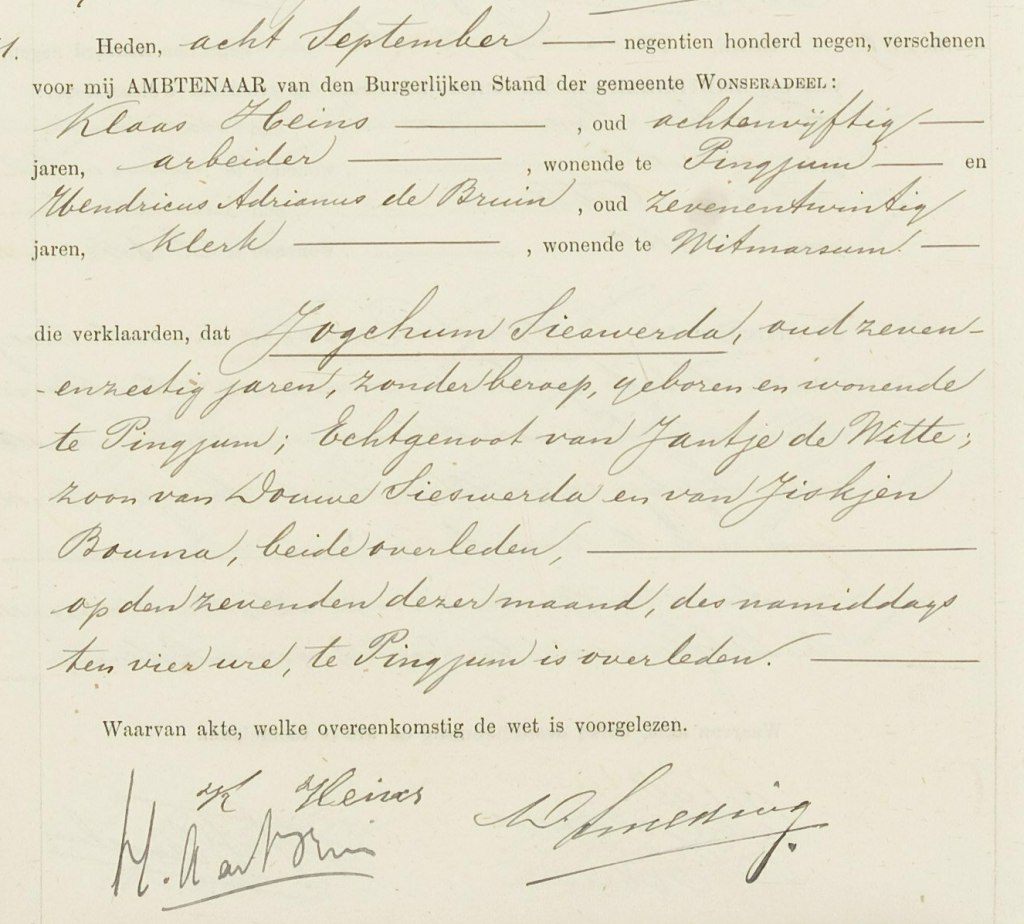 Heden, acht September negentien honderd negen, verschenen
voor mij AMBTENAAR van den Burgerlijken Stand der gemeente WONSERADEEL:
Klaas Heins , oud achtenvijftig
jaren, arbeider , wonende te Pingjum en
Hendricus Adrianus de Bruin , oud zevenentwintig
jaren, klerk , wonende te Witmarsum
die verklaarden, dat Jogchum Sieswerda, oud zeven-
-enzestig jaren, zonder beroep, geboren en wonende
te Pingjum; Echtgenoot van Jantje de Witte;
zoon van Douwe Sieswerda en van Jiskjen
Bouma, beide overleden,
op den zevenden dezer maand, des namiddags
ten vier ure, te Pingjum is overleden.
Waarvan akte, welke overeenkomstig de wet is voorgelezen.
K Heins